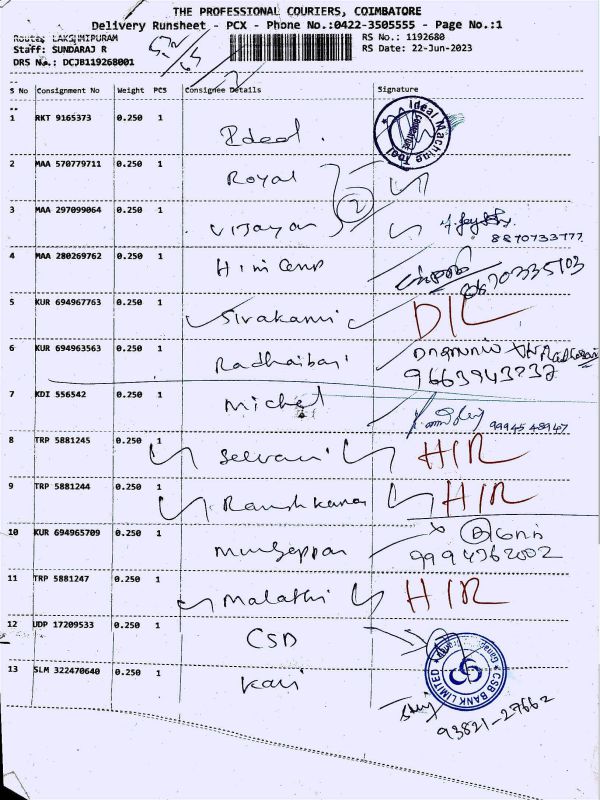 THE PROFESSIONAL COURIERS, COIMBATORE
Delivery Runsheet - PCX - Phone No.:0422-3505555 - Page No.:1
Route: LAKSHMIPURAM
Staff: SUNDARAJ R
DRS No.: DCJB119268001
RS No.: 1192680
RS Date: 22-Jun-2023
S No Consignment No Weight PCS Consignee Details Signature
1 RKT 9165373 0.250 1 Ideal.
Ideal Machine Tool
Coimbatore
2 MAA 570779711 0.250 1 Royal
2
3 MAA 297099064 0.250 1 Vijayan
8870733777
4 MAA 280269762 0.250 1
5 KUR 694967763 0.250 1 Sivakami D/L
6 KUR 694963563 0.250 1 Radhaibai
9663943237
7 KDI 556542 0.250 1 Michel
99945 48947
8 TRP 5881245 0.250 1 Selvani H/R
9 TRP 5881244 0.250 1 H/R
10 KUR 694965709 0.250 1 Murugappan
9994362002
11 TRP 5881247 0.250 1 Malathi H/R
12 UDP 17209533 0.250 1 CSD
CSB BANK LIMITED
13 SLM 322470640 0.250 1 Kavi
93821-27662